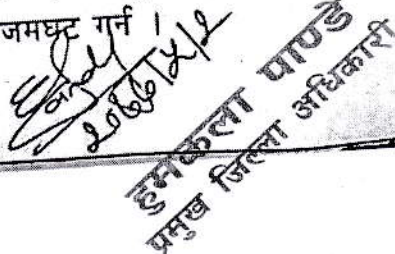 जमघट गर्न ।
२०७७/४/२
हुमकला पाण्डे
प्रमुख जिल्ला अधिकारी